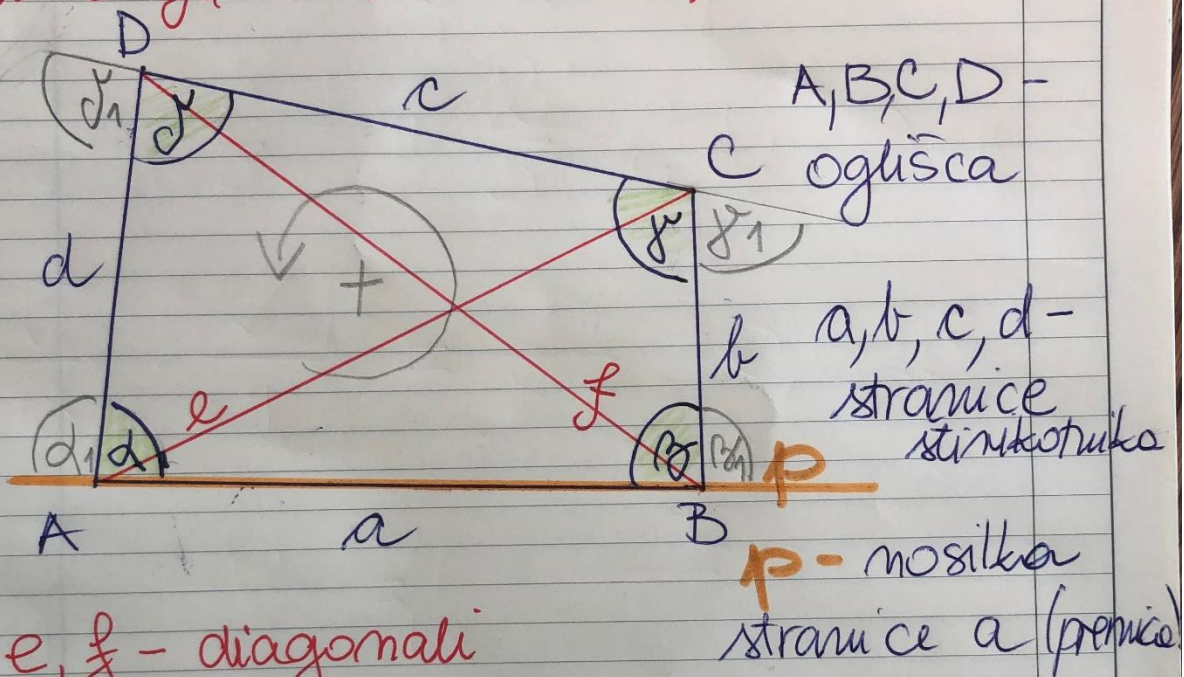 D
c
A,B,C,D -
oglišča
δ1 δ
C
γ γ1
d
+
a, b, c, d -
stranice
štirikotnika
b
e
f
α1 α
β β1
p
A
a
B
p - nosilka
stranice a (premica)
e, f - diagonali